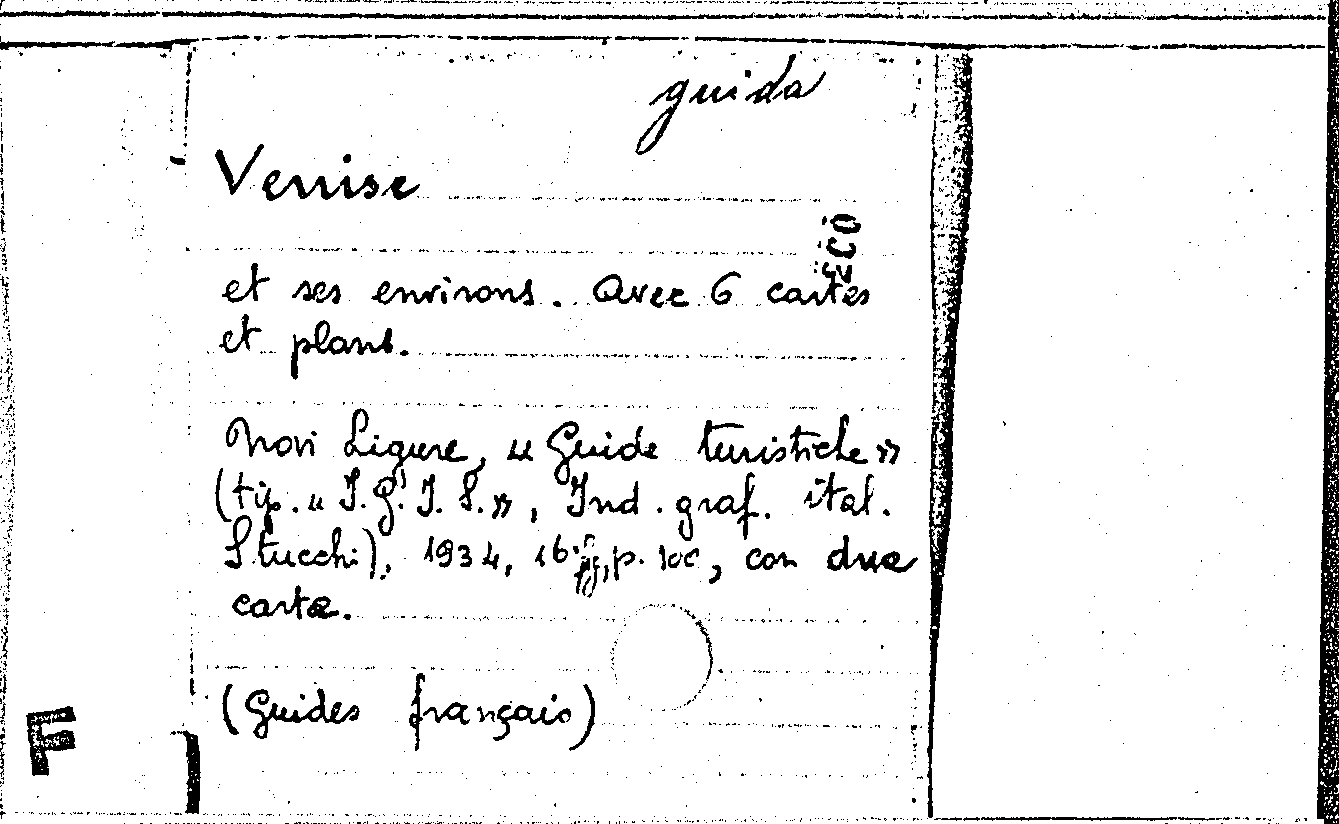 guida
Venise
ECO
et ses environs. Avec 6 cartes
et plans.
Novi Ligure, « Guide turistiche »
(tip. « I.G.I.S.», Ind. graf. ital.
Stucchi), 1934, 16° p. 100, con due
carte.
(Guides français)
F